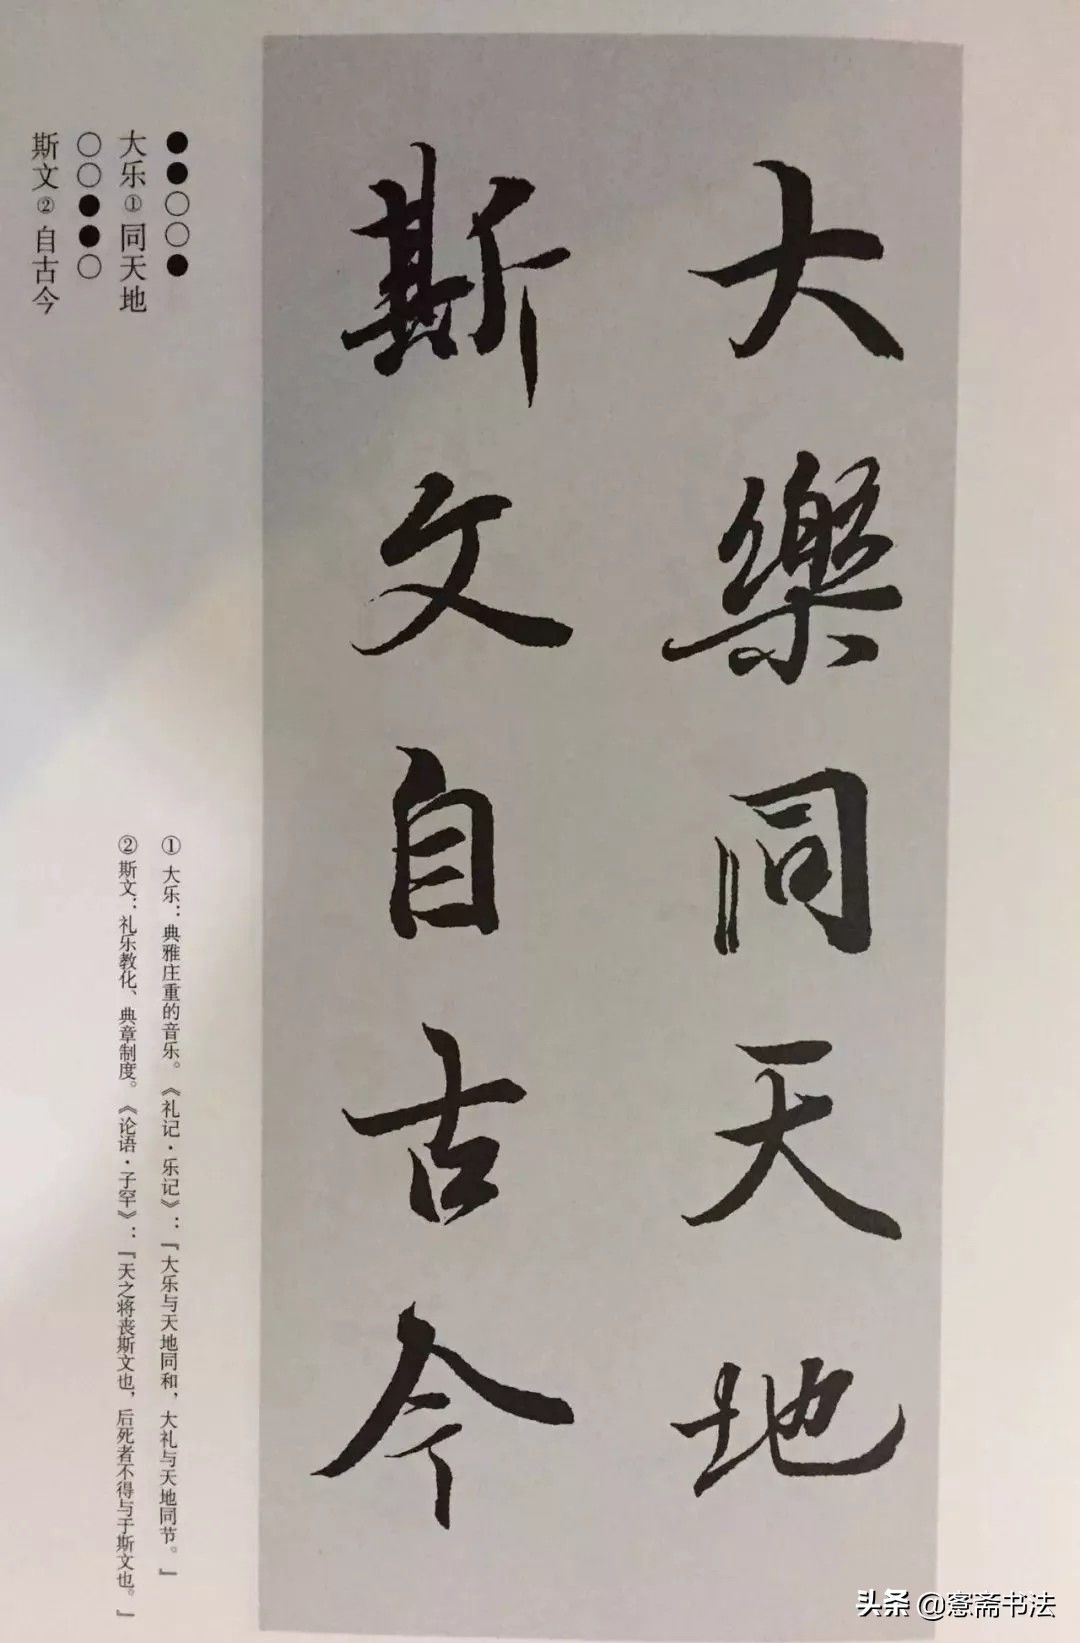 大樂同天地
斯文自古今
●●○○●
大乐①同天地
○○●●○
斯文②自古今
① 大乐：典雅庄重的音乐。《礼记·乐记》：「大乐与天地同和，大礼与天地同节。」
② 斯文：礼乐教化、典章制度。《论语·子罕》：「天之将丧斯文也，后死者不得与于斯文也。」
头条 @愙斋书法